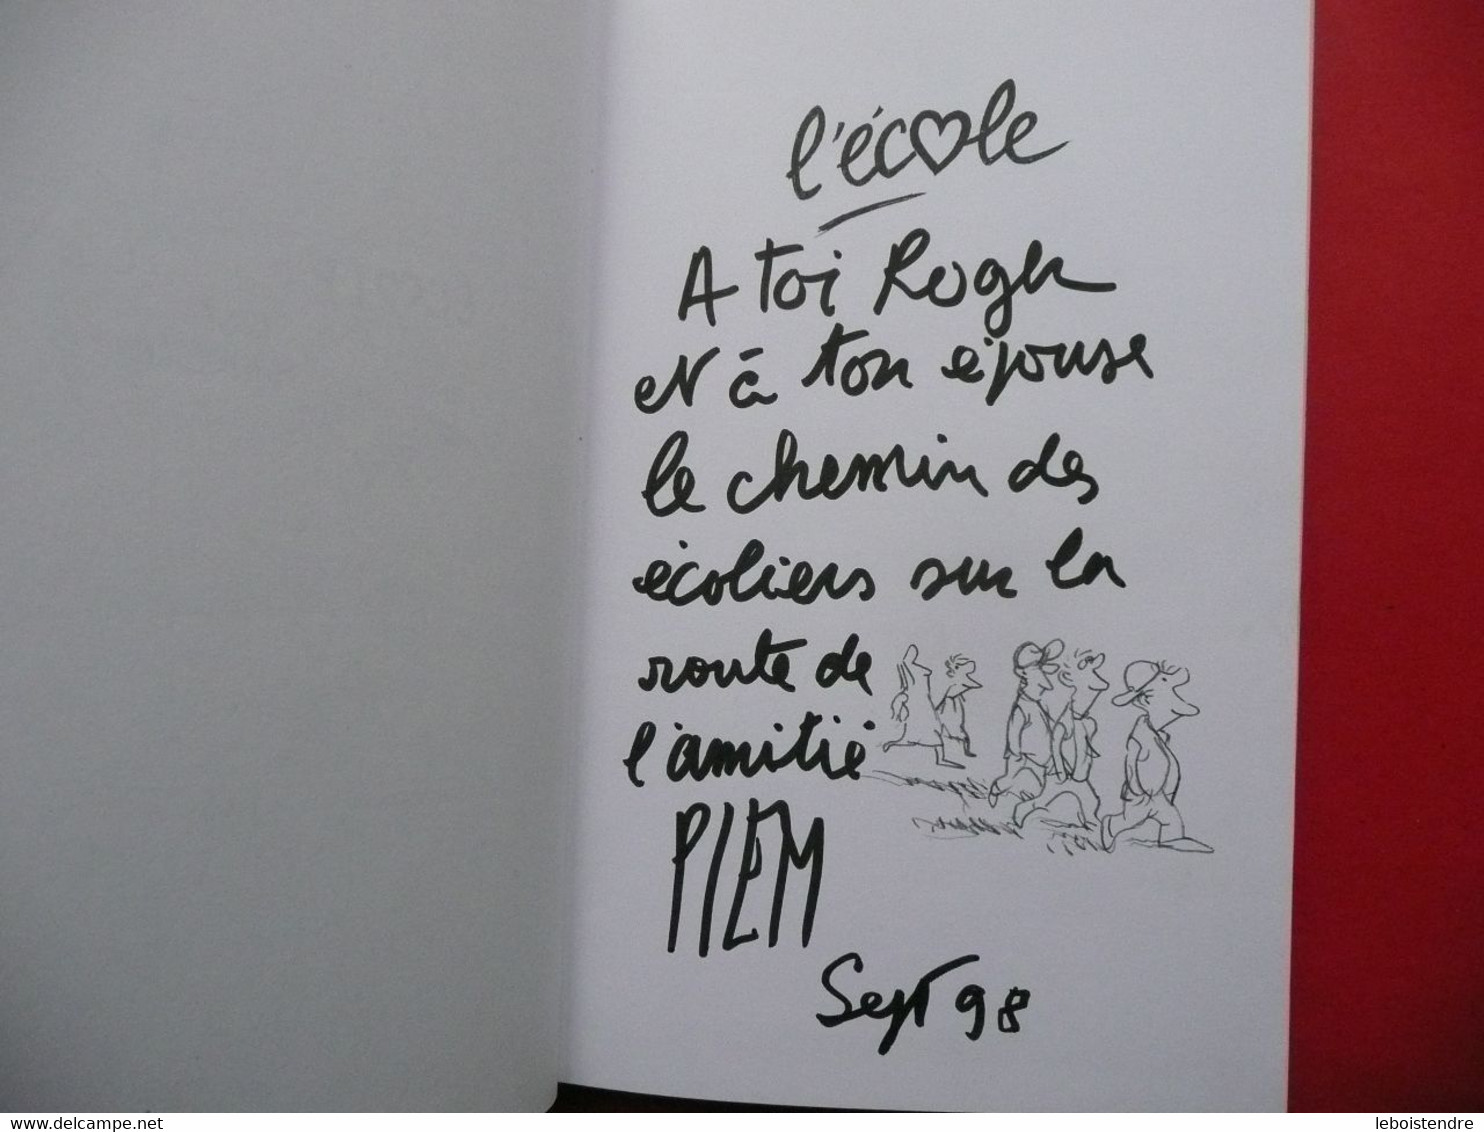 l'éc♡le
A toi Roger
et à ton épouse
le chemin des
écoliers sur la
route de
l'amitié
PIEM
Sept 98
www.delcampe.net
leboistendre